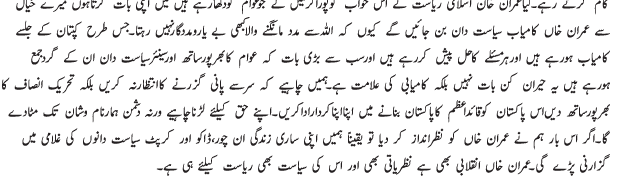 کام کرتے رہے۔کیا عمران خان اسلامی ریاست کے اس خواب کو پورا کریں گے جو عوام کو دکھا رہے ہیں میں اپنی بات کرتا ہوں میرے خیال
سے عمران خاں کامیاب سیاست دان بن جائیں گے کیوں کہ اللہ سے مدد مانگنے والا کبھی بے یارو مددگار نہیں رہتا۔جس طرح کپتان کے جلسے
کامیاب ہو رہے ہیں اور ہر مسئلے کا حل پیش کر رہے ہیں اور سب سے بڑی بات کہ عوام کا بھرپور ساتھ اور سینئر سیاست دان ان کے گرد جمع
ہو رہے ہیں یہ حیران کن بات نہیں بلکہ کامیابی کی علامت ہے۔ہمیں چاہیے کہ سر سے پانی گزرنے کا انتظار نہ کریں بلکہ تحریک انصاف کا
بھرپور ساتھ دیں اس پاکستان کو قائد اعظم کا پاکستان بنانے میں اپنا اپنا کردار ادا کریں۔اپنے حق کیلئے لڑنا چاہیے ورنہ دشمن ہمارا نام و نشان تک مٹا دے
گا۔اگر اس بار ہم نے عمران خاں کو نظر انداز کر دیا تو یقیناً ہمیں اپنی ساری زندگی ان چور،ڈاکو اور کرپٹ سیاست دانوں کی غلامی میں
گزارنی پڑے گی۔عمران خاں انقلابی بھی ہے نظریاتی بھی اور اس کی سیاست بھی ریاست کیلئے ہی ہے۔